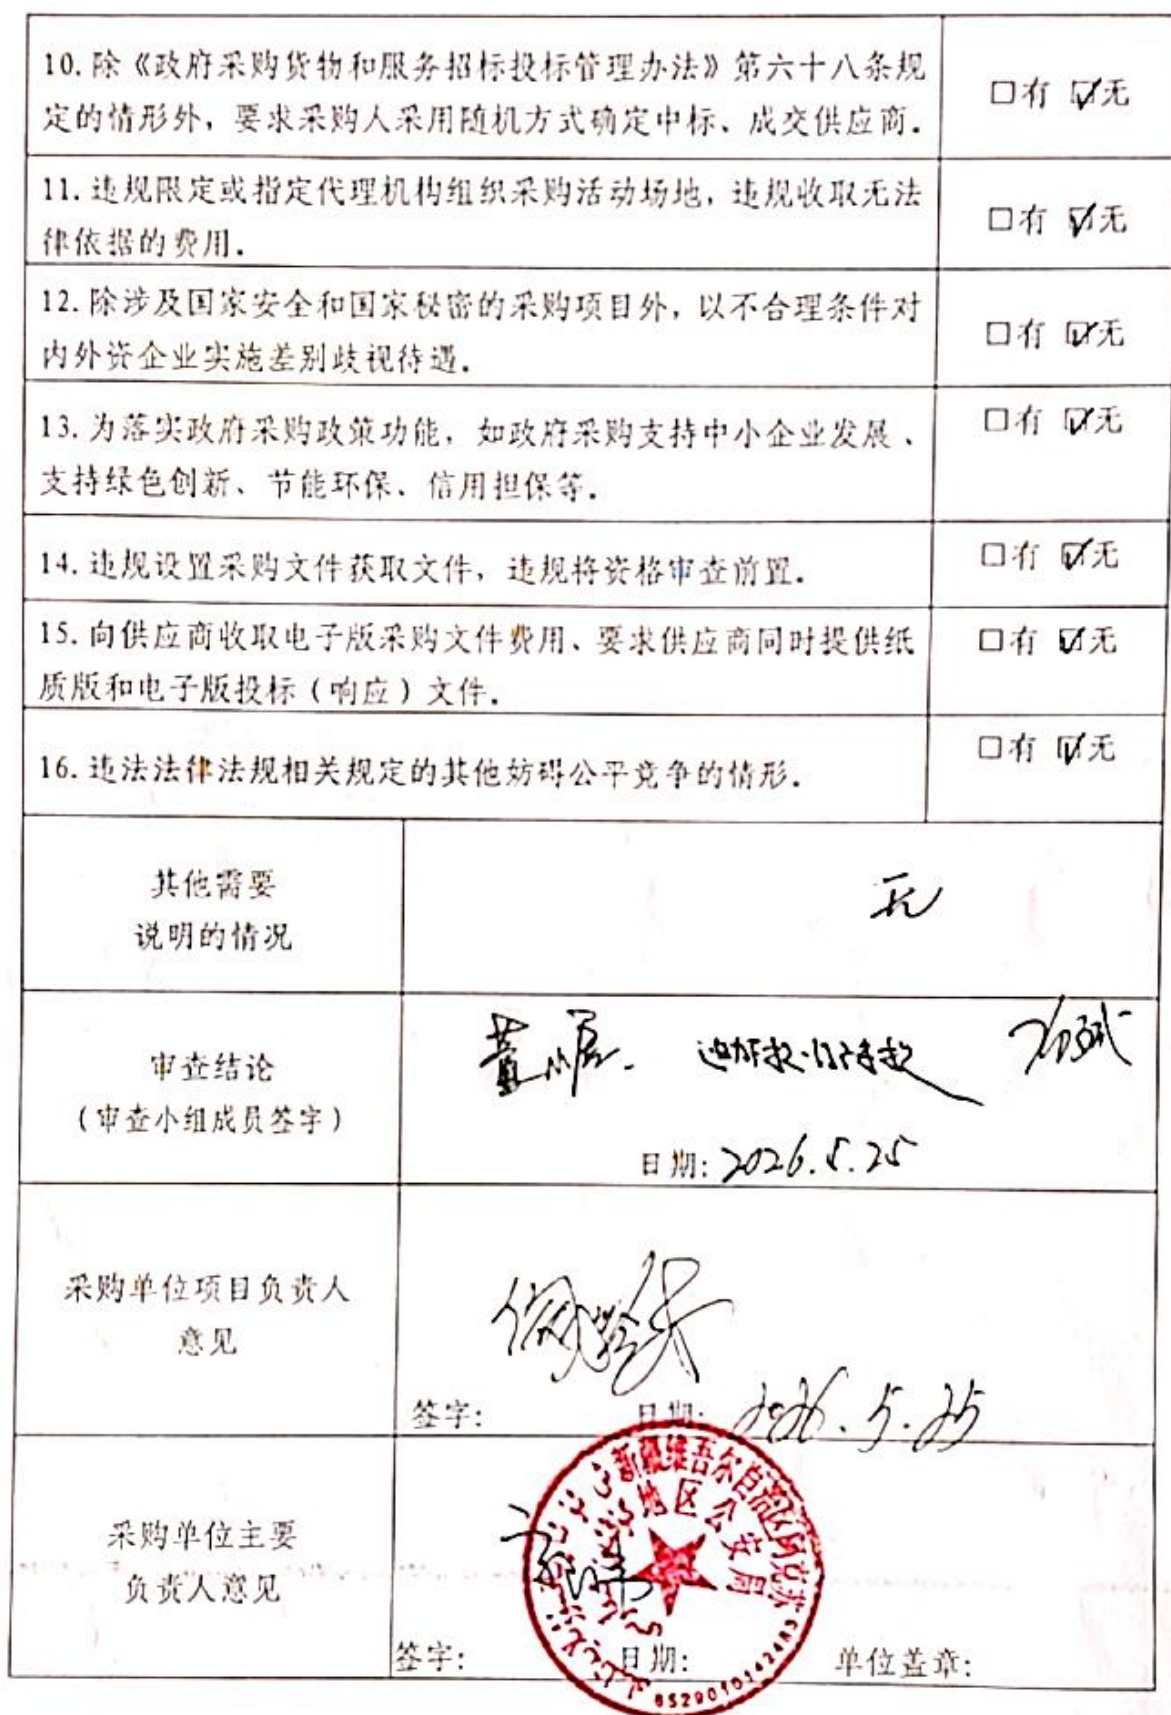 10.除《政府采购货物和服务招标投标管理办法》第六十八条规
定的情形外，要求采购人采用随机方式确定中标、成交供应商。
□有 ☑无
11.违规限定或指定代理机构组织采购活动场地，违规收取无法
律依据的费用。
□有 ☑无
12.除涉及国家安全和国家秘密的采购项目外，以不合理条件对
内外资企业实施差别歧视待遇。
□有 ☑无
13.为落实政府采购政策功能，如政府采购支持中小企业发展、
支持绿色创新、节能环保、信用担保等。
□有 ☑无
14.违规设置采购文件获取文件，违规将资格审查前置。
□有 ☑无
15.向供应商收取电子版采购文件费用、要求供应商同时提供纸
质版和电子版投标（响应）文件。
□有 ☑无
16.违法法律法规相关规定的其他妨碍公平竞争的情形。
□有 ☑无
其他需要
说明的情况
无
审查结论
（审查小组成员签字）
日期：2026.5.25
采购单位项目负责人
意见
签字： 日期：2026.5.25
采购单位主要
负责人意见
新疆维吾尔自治区阿克苏
地区公安局
签字： 日期： 单位盖章：